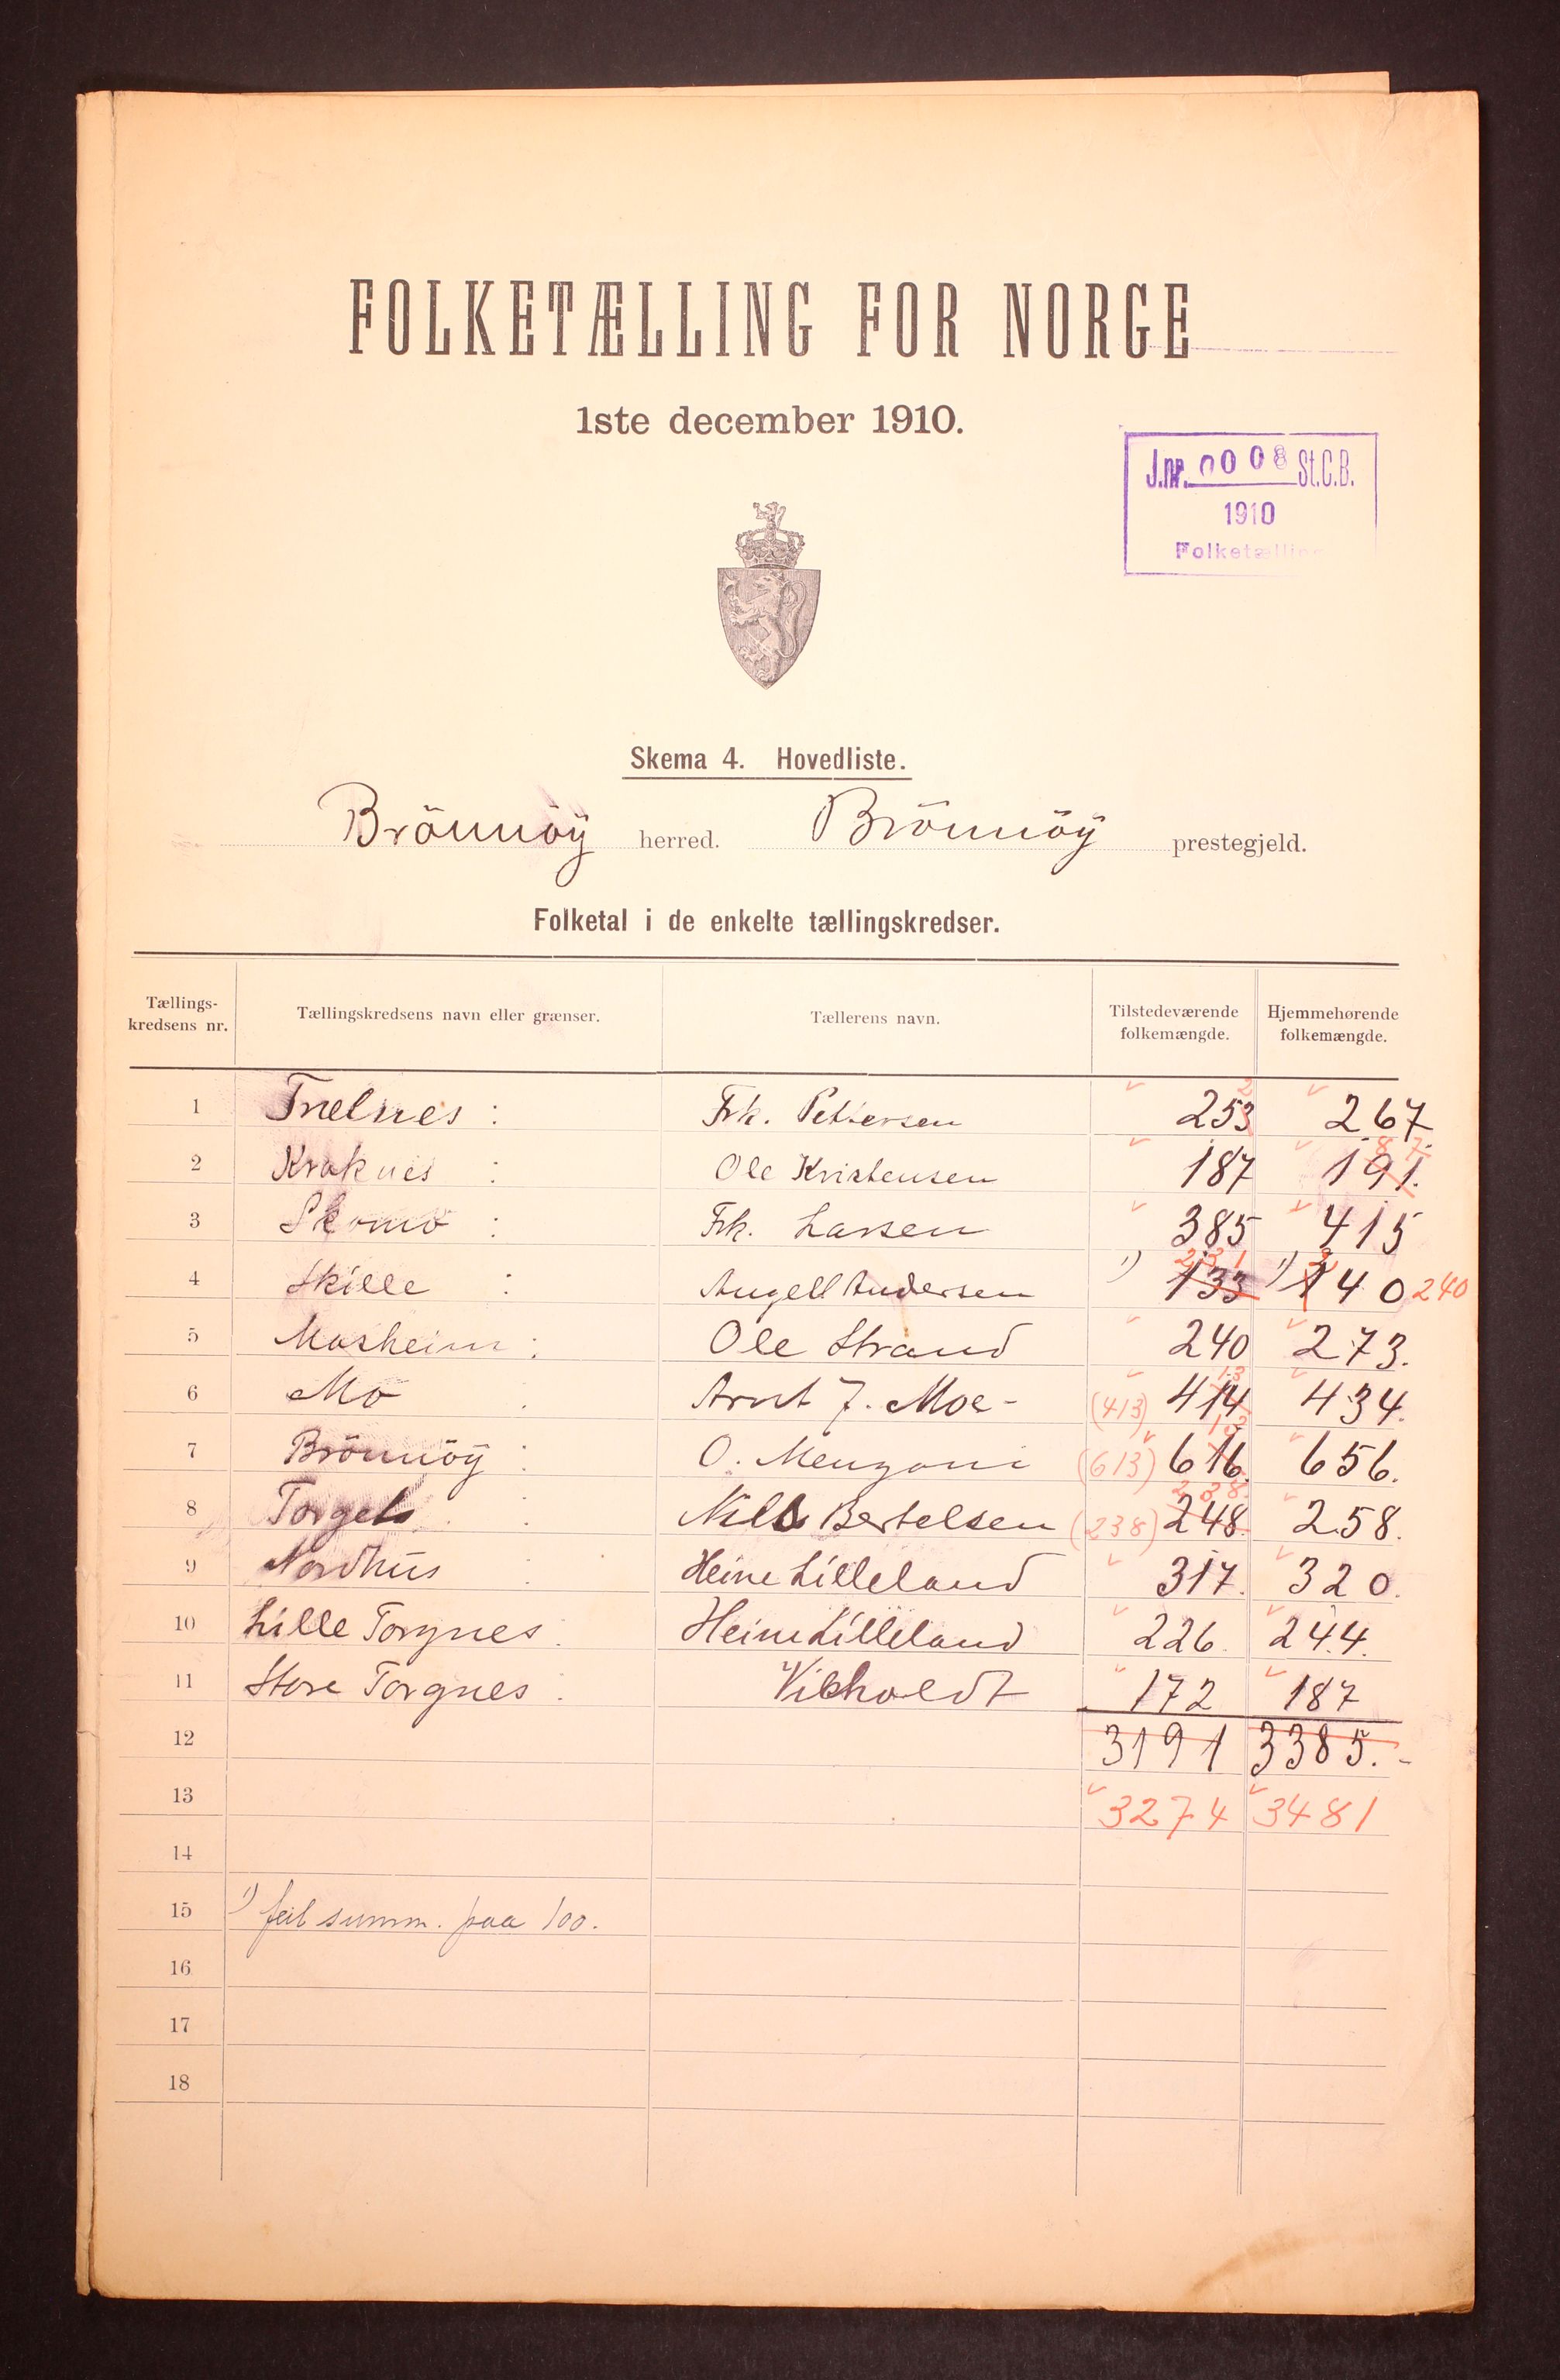 FOLKETÆLLING FOR NORGE
1ste december 1910.
J.nr. 0008 St.C.B.
1910
Folketælling
Skema 4. Hovedliste.
Brönnöy herred. Brönnöy prestegjeld.
Folketal i de enkelte tællingskredser.
Tællings-kredsens nr. Tællingskredsens navn eller grænser. Tællerens navn. Tilstedeværende folkemængde. Hjemmehørende folkemængde.
1 Trælnes : Frk. Pettersen 253 2 267
2 Kraknes : Ole Kristensen 187 191. 87.
3 Skomo : Frk. Larsen 385 415
4 Skille : Angell Andersen 1) 133 231 1) 140 2 240
5 Mosheim : Ole Strand 240 273.
6 Mo : Arnt J. Moe - (413) 414 13 434.
7 Brönnöy : O. Menzoni (613) 616. 13 656.
8 Torget : Nils Bertelsen (238) 248. 238. 258.
9 Nordhus : Heine Lilleland 317. 320.
10 Lille Torgnes : Heine Lilleland 226. 244.
11 Store Torgnes : Vibholdt 172 187
12 3191 3385.-
13 3274 3481
14
15 1) feil summ. paa 100.
16
17
18